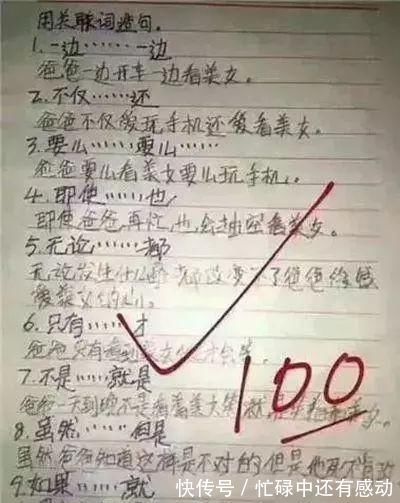 用关联词造句.
1.一边……一边
爸爸一边开车一边看美女。
2.不仅……还
爸爸不仅爱玩手机还爱看美女。
3.要么……要么……
爸爸要么看美女要么玩手机。
4.即使……也
即使爸爸再忙,也会抽空看美女。
5.无论……都
无论发生什么 都改变不了爸爸
爱美女的心。
6.只有……才
爸爸只有看到美女 才会笑。
7.不是……就是
爸爸一天到晚不是看着美女笑就是
8.虽然……但是
虽然爸爸知道这样是不对的但是他
9.如果……就
100
快传号/忙碌中还有感动